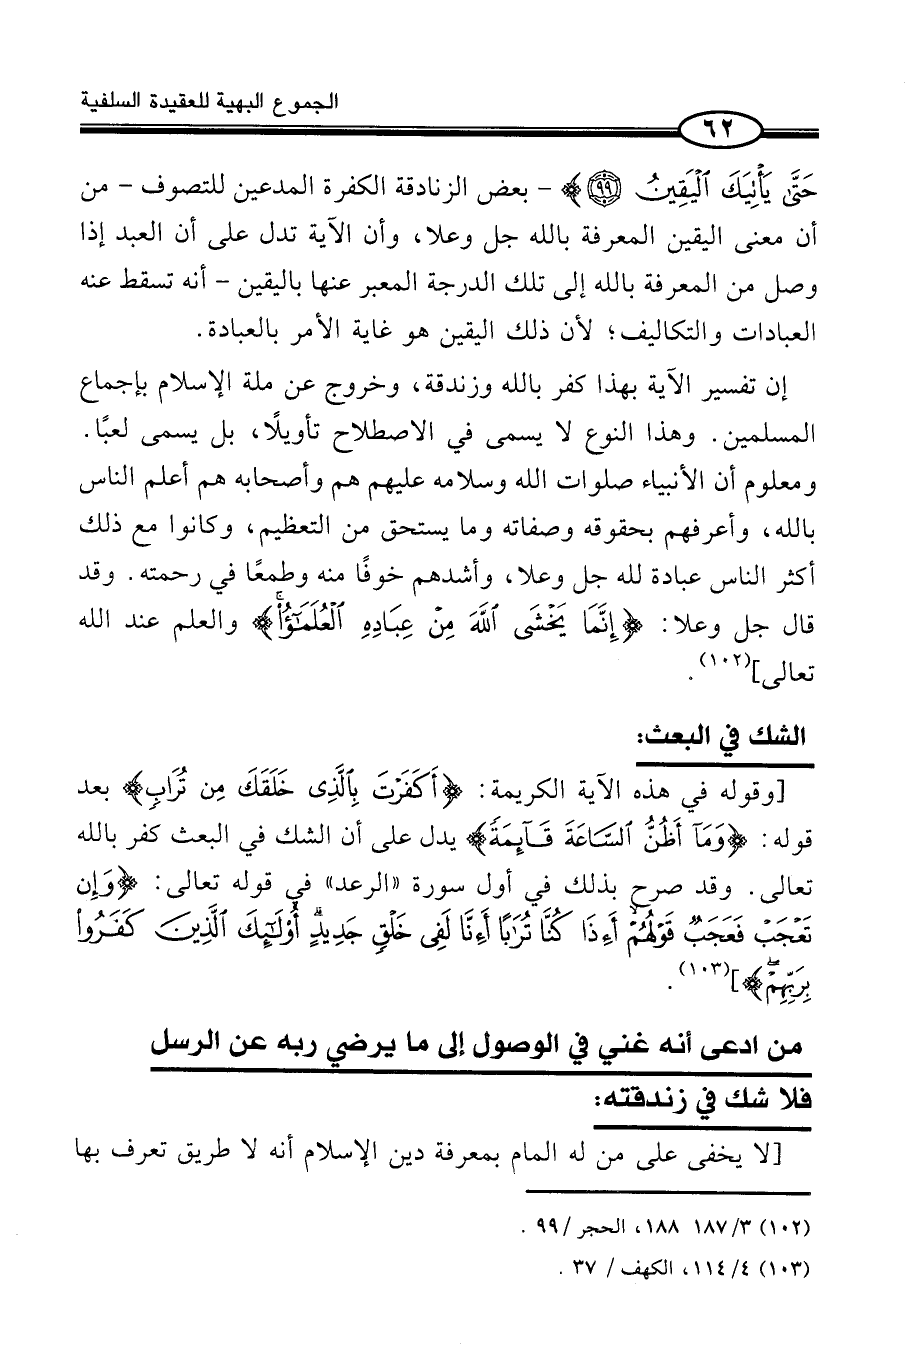 الجموع البهية للعقيدة السلفية
٦٢
حَتَّى يَأْتِيَكَ ٱلْيَقِينُ ۝٩٩﴾ - بعض الزنادقة الكفرة المدعين للتصوف - من
أن معنى اليقين المعرفة بالله جل وعلا، وأن الآية تدل على أن العبد إذا
وصل من المعرفة بالله إلى تلك الدرجة المعبر عنها باليقين - أنه تسقط عنه
العبادات والتكاليف؛ لأن ذلك اليقين هو غاية الأمر بالعبادة.
إن تفسير الآية بهذا كفر بالله وزندقة، وخروج عن ملة الإسلام بإجماع
المسلمين. وهذا النوع لا يسمى في الاصطلاح تأويلًا، بل يسمى لعبًا.
ومعلوم أن الأنبياء صلوات الله وسلامه عليهم هم وأصحابه هم أعلم الناس
بالله، وأعرفهم بحقوقه وصفاته وما يستحق من التعظيم، وكانوا مع ذلك
أكثر الناس عبادة لله جل وعلا، وأشدهم خوفًا منه وطمعًا في رحمته. وقد
قال جل وعلا: ﴿إِنَّمَا يَخْشَى ٱللَّهَ مِنْ عِبَادِهِ ٱلْعُلَمَٰٓؤُا۟ۚ﴾ والعلم عند الله
تعالى](١٠٢).
الشك في البعث:
[وقوله في هذه الآية الكريمة: ﴿أَكَفَرْتَ بِٱلَّذِى خَلَقَكَ مِن تُرَابٍ﴾ بعد
قوله: ﴿وَمَآ أَظُنُّ ٱلسَّاعَةَ قَآئِمَةً﴾ يدل على أن الشك في البعث كفر بالله
تعالى. وقد صرح بذلك في أول سورة «الرعد» في قوله تعالى: ﴿وَإِن
تَعْجَبْ فَعَجَبٌ قَوْلُهُمْ أَءِذَا كُنَّا تُرَٰبًا أَءِنَّا لَفِى خَلْقٍ جَدِيدٍۗ أُو۟لَٰٓئِكَ ٱلَّذِينَ كَفَرُوا۟
بِرَبِّهِمْۖ﴾](١٠٣).
من ادعى أنه غني في الوصول إلى ما يرضي ربه عن الرسل
فلا شك في زندقته:
[لا يخفى على من له المام بمعرفة دين الإسلام أنه لا طريق تعرف بها
(١٠٢) ١٨٧/٣ ١٨٨، الحجر /٩٩ .
(١٠٣) ١١٤/٤، الكهف / ٣٧ .